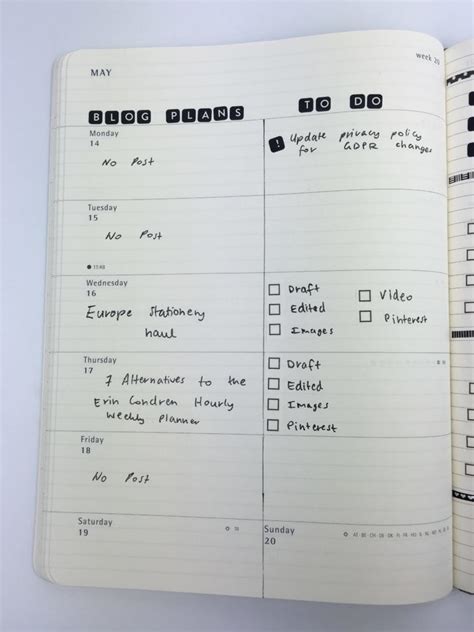 MAY
week 20
BLOG PLANS
TO DO
Monday
14
No Post
! Update privacy policy
for GDPR changes
Tuesday
15
No Post
Wednesday
16
Europe Stationery
haul
Draft
Edited
Images
Video
Pinterest
Thursday
17
7 Alternatives to the
Erin Condren Hourly
Weekly Planner
Draft
Edited
Images
Pinterest
Friday
18
No Post
Saturday
19
Sunday
20